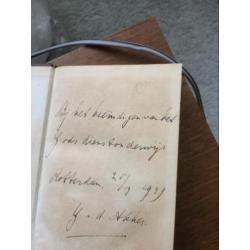 Bij het beëindigen van het
Godsdienstonderwijs
Rotterdam, 25/3 1939
v. d.